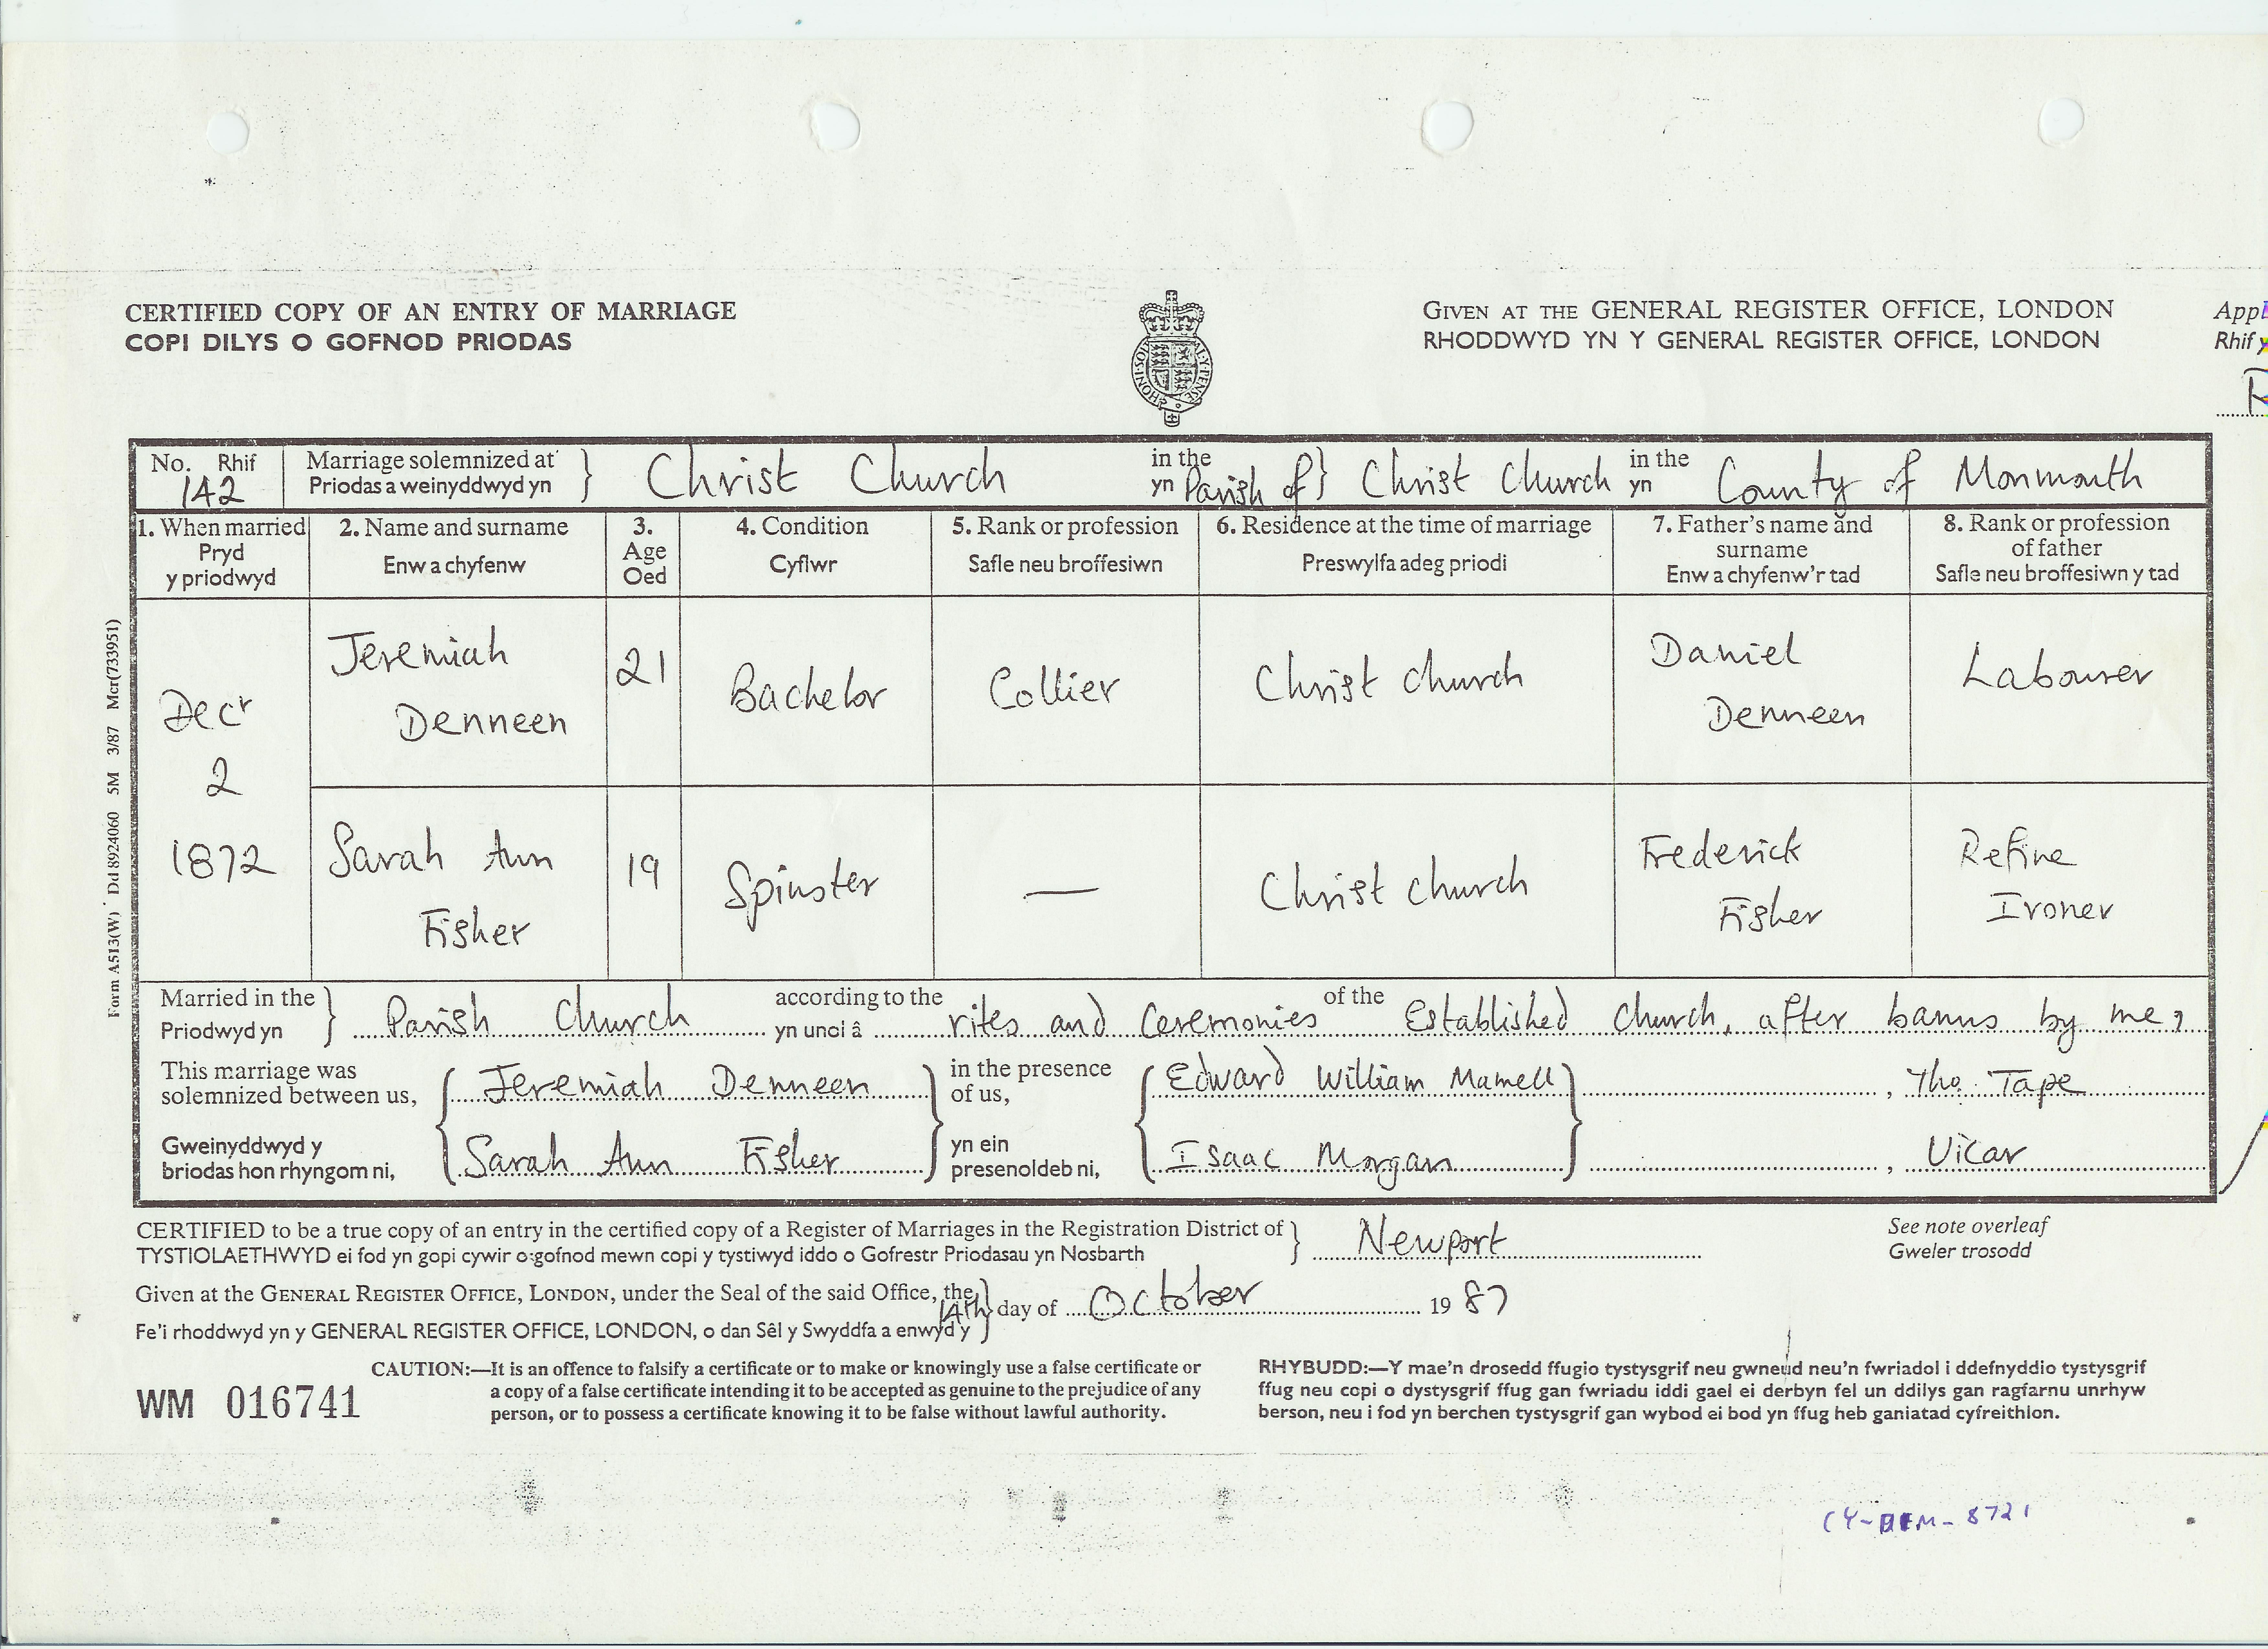 CERTIFIED COPY OF AN ENTRY OF MARRIAGE
COPI DILYS O GOFNOD PRIODAS
GIVEN AT THE GENERAL REGISTER OFFICE, LONDON
RHODDWYD YN Y GENERAL REGISTER OFFICE, LONDON
Appl
Rhif y
HONI·SOIT
Y·PENSE
No. Rhif
142
Marriage solemnized at
Priodas a weinyddwyd yn
Christ Church
in the
yn
Parish of
Christ Church
in the
yn
County of Monmouth
1. When married
Pryd
y priodwyd
2. Name and surname
Enw a chyfenw
3.
Age
Oed
4. Condition
Cyflwr
5. Rank or profession
Safle neu broffesiwn
6. Residence at the time of marriage
Preswylfa adeg priodi
7. Father's name and
surname
Enw a chyfenw'r tad
8. Rank or profession
of father
Safle neu broffesiwn y tad
Decr
2
1872
Jeremiah
Denneen
21
Bachelor
Collier
Christ church
Daniel
Denneen
Labourer
Sarah Ann
Fisher
19
Spinster
—
Christ church
Frederick
Fisher
Refine
Ironer
Married in the
Priodwyd yn
Parish Church
according to the
yn unol â
rites and Ceremonies
of the
Established Church, after banns by me,
This marriage was
solemnized between us,
Gweinyddwyd y
briodas hon rhyngom ni,
Jeremiah Denneen
Sarah Ann Fisher
in the presence
of us,
yn ein
presenoldeb ni,
Edward William
Isaac Morgan
, Tho. Tape
, Vicar
CERTIFIED to be a true copy of an entry in the certified copy of a Register of Marriages in the Registration District of
TYSTIOLAETHWYD ei fod yn gopi cywir o gofnod mewn copi y tystiwyd iddo o Gofrestr Priodasau yn Nosbarth
Newport
See note overleaf
Gweler trosodd
Given at the GENERAL REGISTER OFFICE, LONDON, under the Seal of the said Office, the
14th day of October 1987
Fe'i rhoddwyd yn y GENERAL REGISTER OFFICE, LONDON, o dan Sêl y Swyddfa a enwyd y
CAUTION:—It is an offence to falsify a certificate or to make or knowingly use a false certificate or
a copy of a false certificate intending it to be accepted as genuine to the prejudice of any
person, or to possess a certificate knowing it to be false without lawful authority.
RHYBUDD:—Y mae'n drosedd ffugio tystysgrif neu gwneud neu'n fwriadol i ddefnyddio tystysgrif
ffug neu copi o dystysgrif ffug gan fwriadu iddi gael ei derbyn fel un ddilys gan ragfarnu unrhyw
berson, neu i fod yn berchen tystysgrif gan wybod ei bod yn ffug heb ganiatad cyfreithlon.
WM 016741
Form A513(W) Dd 8924060 5M 3/87 Mcr(733951)